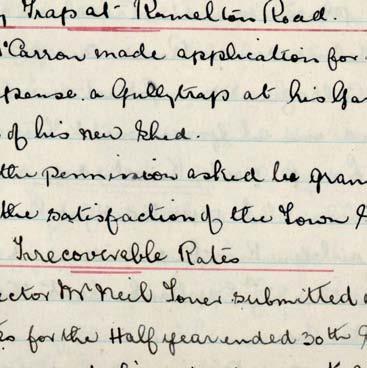 Trap at Ramelton Road.
McCarron made application for
a Gullytrap at his
of his new Shed.
the permission asked be
the satisfaction of the Town
Irrecoverable Rates
Mr Neil Toner submitted
for the Half year ended 30th